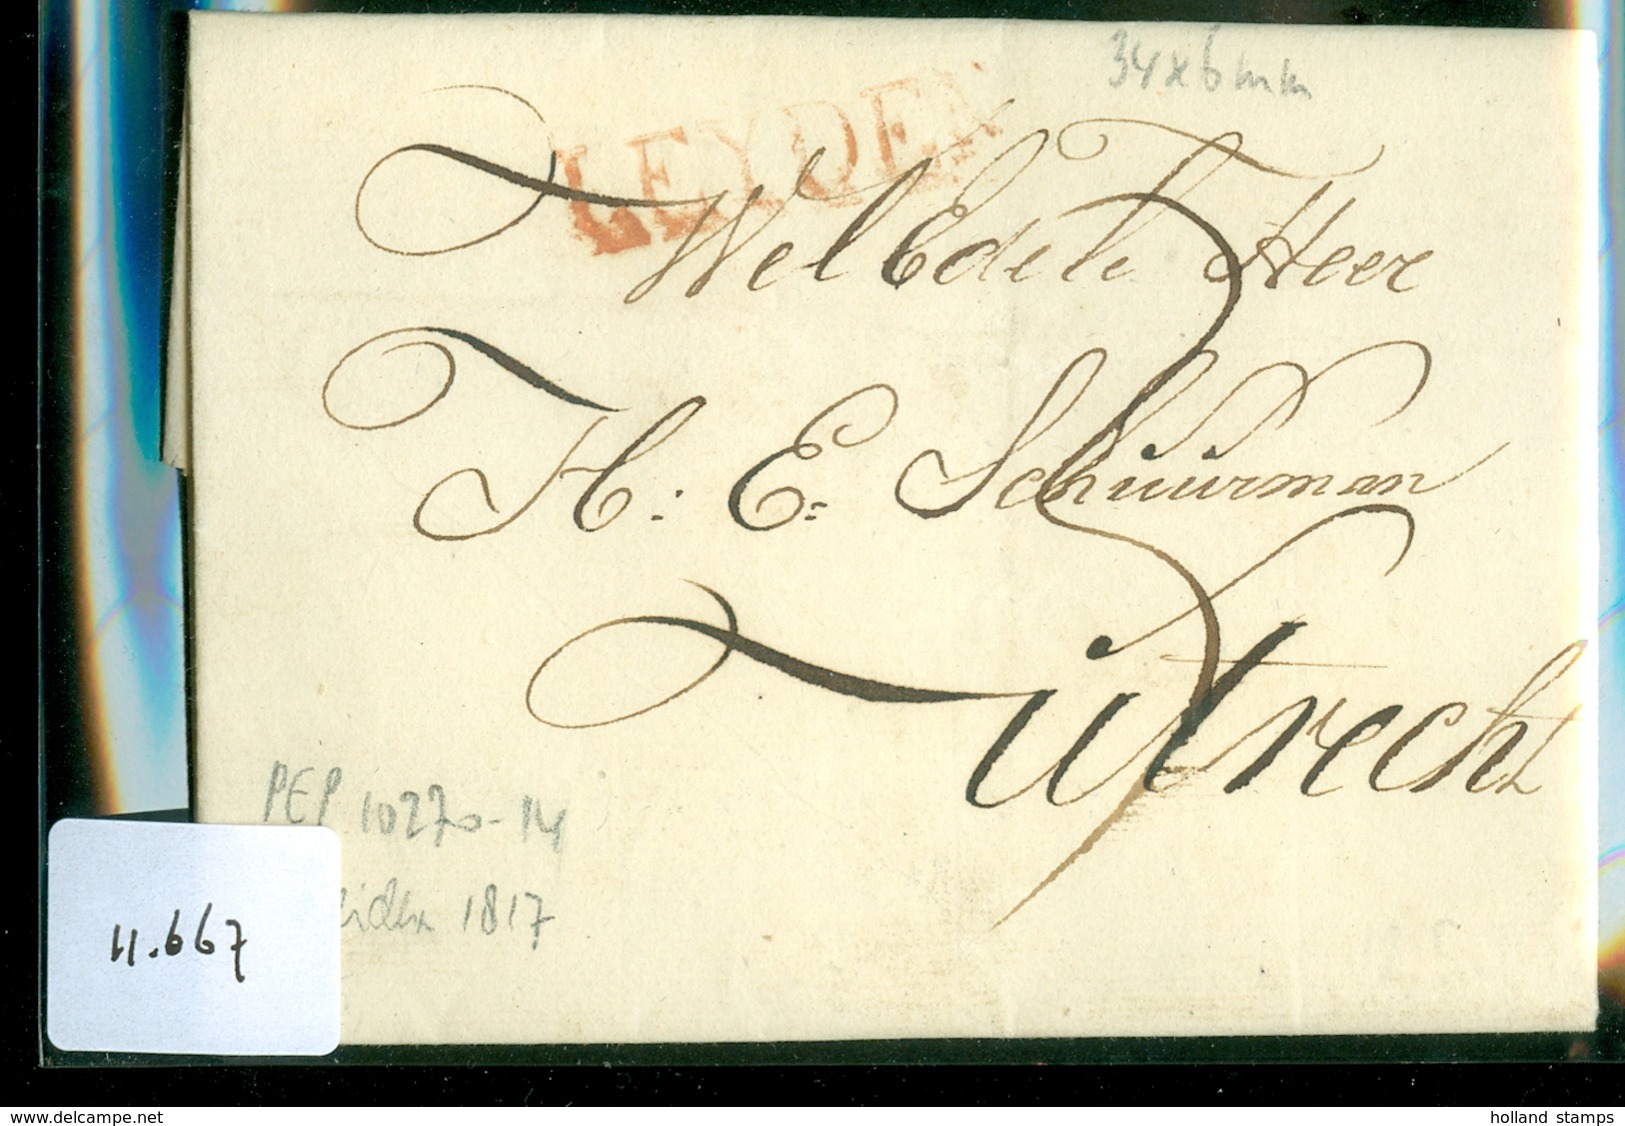 34 x 6 mm
LEYDEN
WelEdele Heer
H: E: Schuurman
Utrecht
PEP 10270-14
Leiden 1817
11.667
www.delcampe.net
holland_stamps